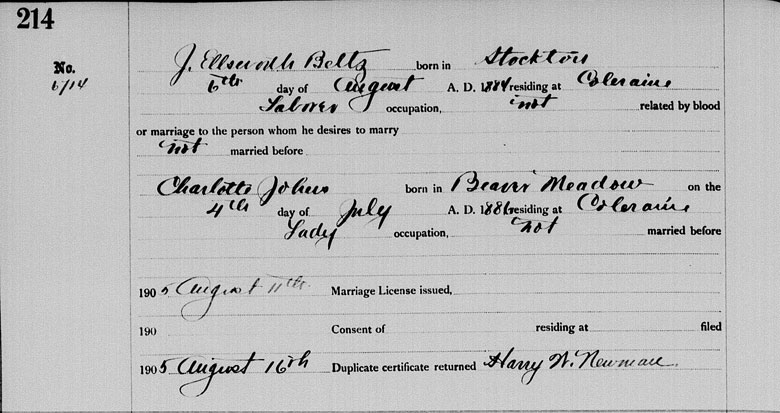 214
No.
J. Ellsworth Beltz born in Stockton
6th day of August A. D. 1884 residing at Coleraine
Laborer occupation, not related by blood
or marriage to the person whom he desires to marry
not married before
Charlotte Johns born in Beaver Meadow on the
4th day of July A. D. 1886 residing at Coleraine
Lady occupation, not married before
1905 August 11th Marriage License issued,
190 Consent of residing at filed
1905 August 16th Duplicate certificate returned Harry W. Newman